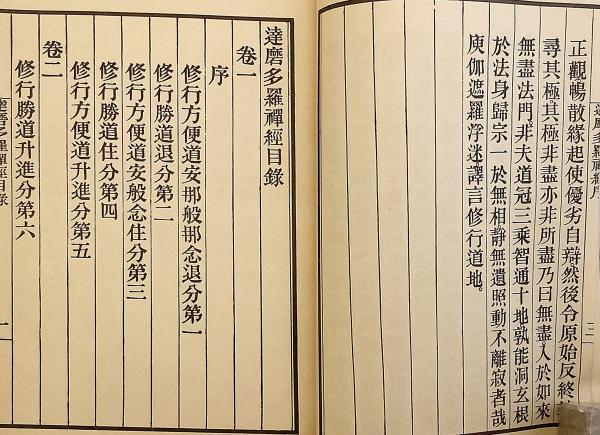 正觀暢散緣起使優劣自辯然後令原始反終
尋其極其極非盡亦非所盡乃曰無盡入於如來
無盡法門非夫道冠三乘智通十地孰能洞玄根
於法身歸宗一於無相靜無遺照動不離寂者哉
庾伽遮羅浮迷譯言修行道地。
達磨多羅禪經目錄
卷一
序
修行方便道安那般那念退分第一
修行勝道退分第二
修行方便道安般念住分第三
修行勝道住分第四
修行方便道升進分第五
卷二
修行勝道升進分第六
達磨多羅禪經目錄
一